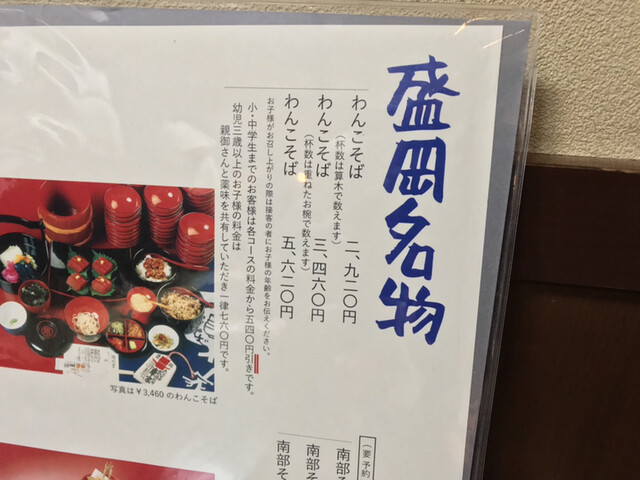 盛岡名物
わんこそば 二、九二〇円
(杯数は算木で数えます)
わんこそば 三、四六〇円
(杯数は重ねたお椀で数えます)
わんこそば 五、六二〇円
お子様がお召し上がりの際は接客の者にお子様の年齢をお伝えください。
小・中学生までのお客様は各コースの料金から五四〇円引きです。
幼児三歳以上のお子様の料金は
親御さんと薬味を共有していただき一律七六〇円です。
写真は¥3,460 のわんこそば
(要予約
南部そ
南部そ
南部そ